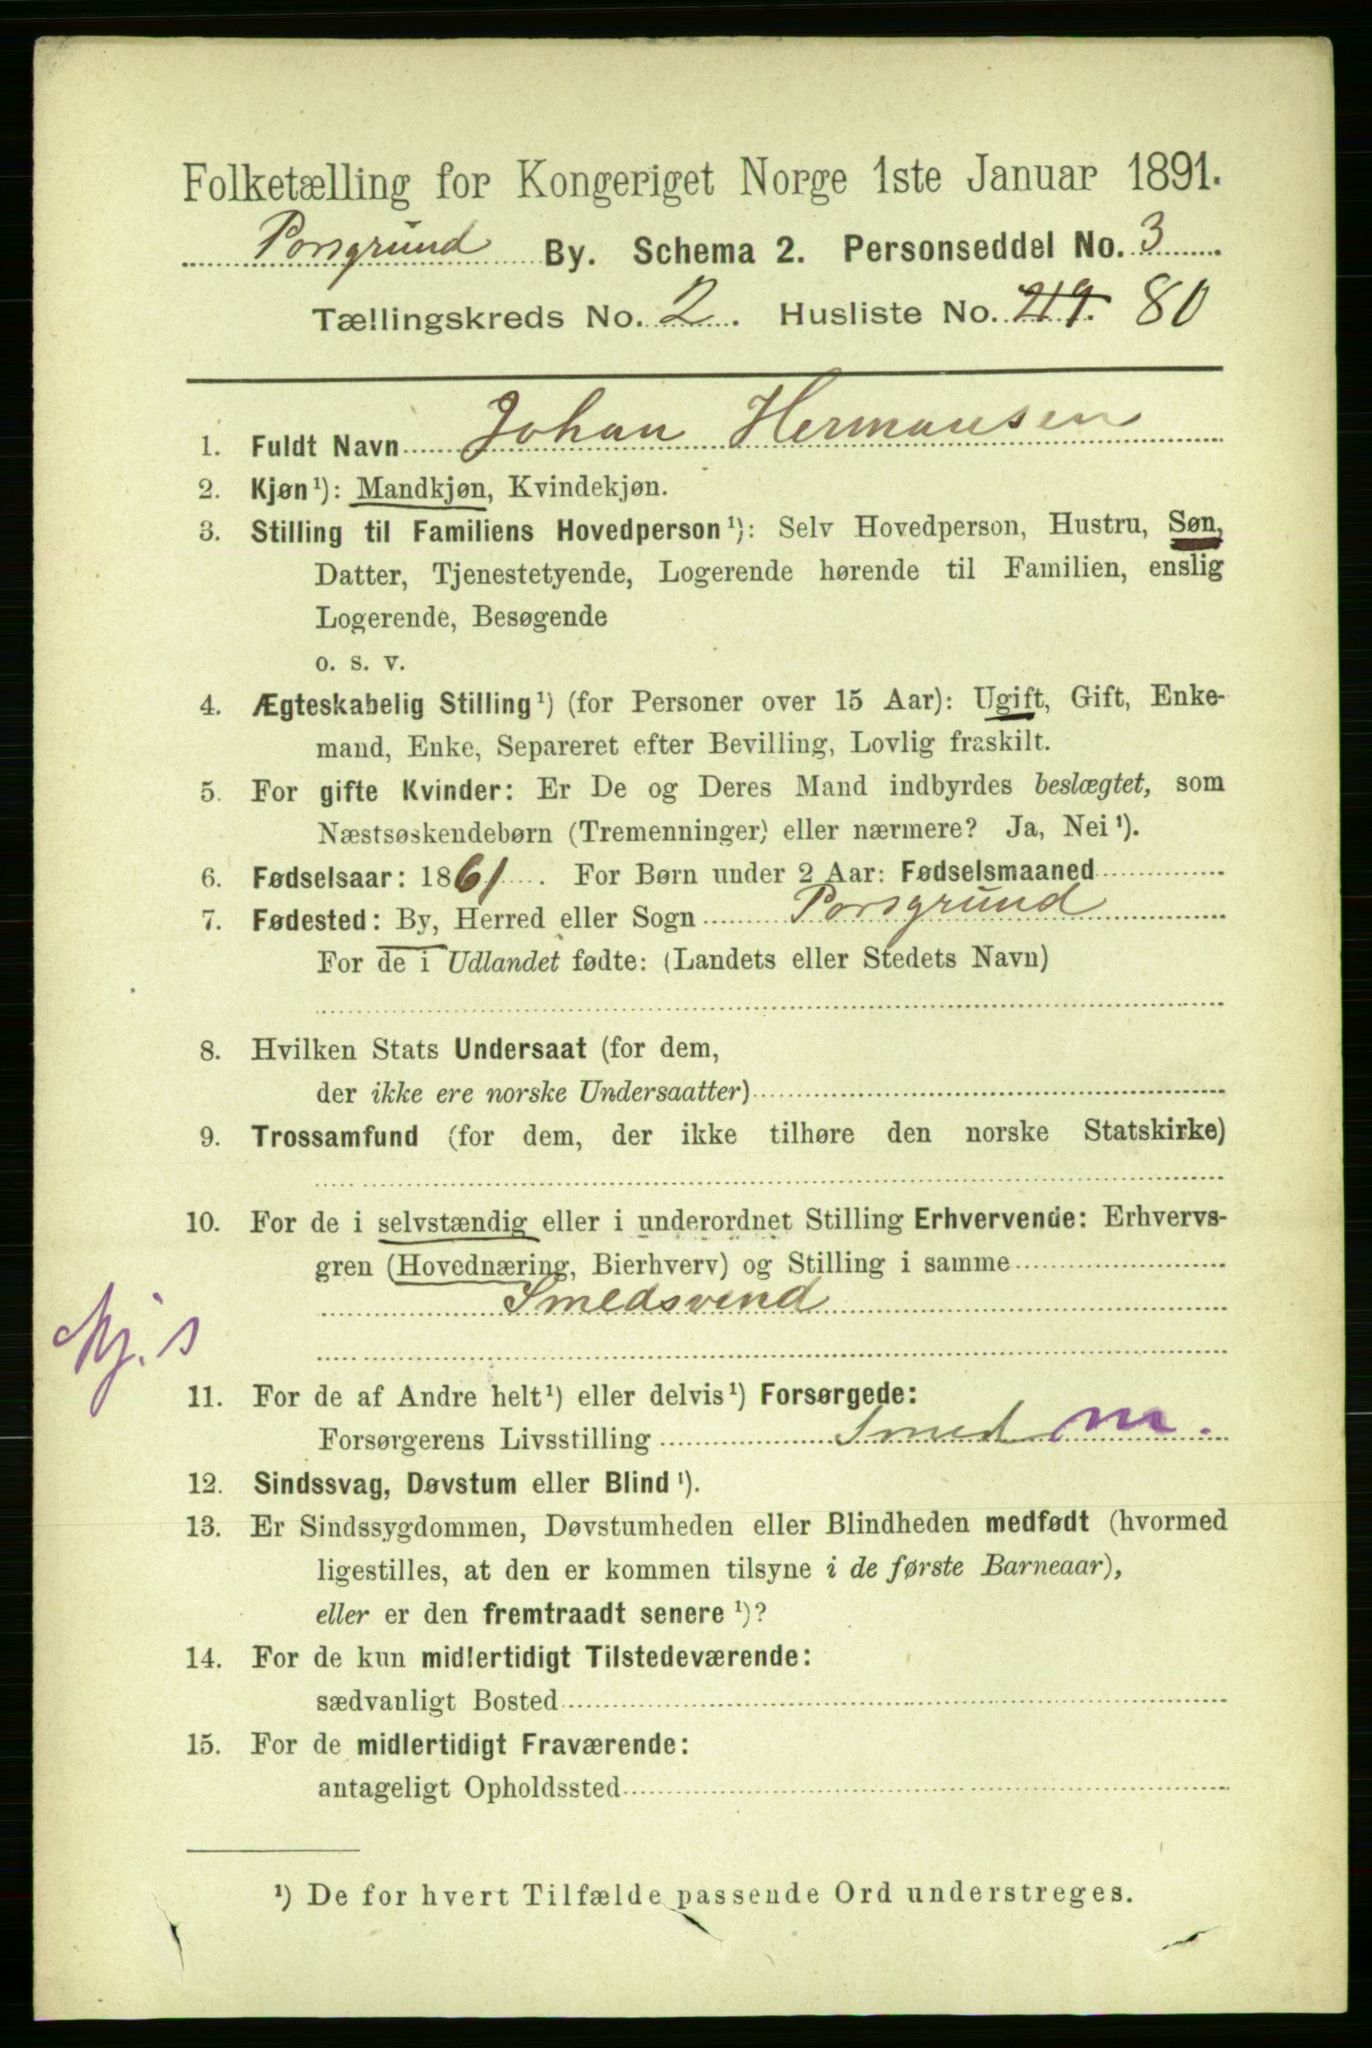 Folketælling for Kongeriget Norge 1ste Januar 1891.
Porsgrund By. Schema 2. Personseddel No. 3
Tællingskreds No. 2. Husliste No. 219. 80
1. Fuldt Navn Johan Hermansen
2. Kjøn¹): Mandkjøn, Kvindekjøn.
3. Stilling til Familiens Hovedperson¹): Selv Hovedperson, Hustru, Søn,
Datter, Tjenestetyende, Logerende hørende til Familien, enslig
Logerende, Besøgende
o. s. v.
4. Ægteskabelig Stilling¹) (for Personer over 15 Aar): Ugift, Gift, Enke-
mand, Enke, Separeret efter Bevilling, Lovlig fraskilt.
5. For gifte Kvinder: Er De og Deres Mand indbyrdes beslægtet, som
Næstsøskendebørn (Tremenninger) eller nærmere? Ja, Nei¹).
6. Fødselsaar: 1861. For Børn under 2 Aar: Fødselsmaaned
7. Fødested: By, Herred eller Sogn Porsgrund
For de i Udlandet fødte: (Landets eller Stedets Navn)
8. Hvilken Stats Undersaat (for dem,
der ikke ere norske Undersaatter)
9. Trossamfund (for dem, der ikke tilhøre den norske Statskirke)
10. For de i selvstændig eller i underordnet Stilling Erhvervende: Erhvervs-
gren (Hovednæring, Bierhverv) og Stilling i samme
Smedsvend
11. For de af Andre helt¹) eller delvis¹) Forsørgede:
Forsørgerens Livsstilling Smed m.
12. Sindssvag, Døvstum eller Blind¹).
13. Er Sindssygdommen, Døvstumheden eller Blindheden medfødt (hvormed
ligestilles, at den er kommen tilsyne i de første Barneaar),
eller er den fremtraadt senere¹)?
14. For de kun midlertidigt Tilstedeværende:
sædvanligt Bosted
15. For de midlertidigt Fraværende:
antageligt Opholdssted
¹) De for hvert Tilfælde passende Ord understreges.